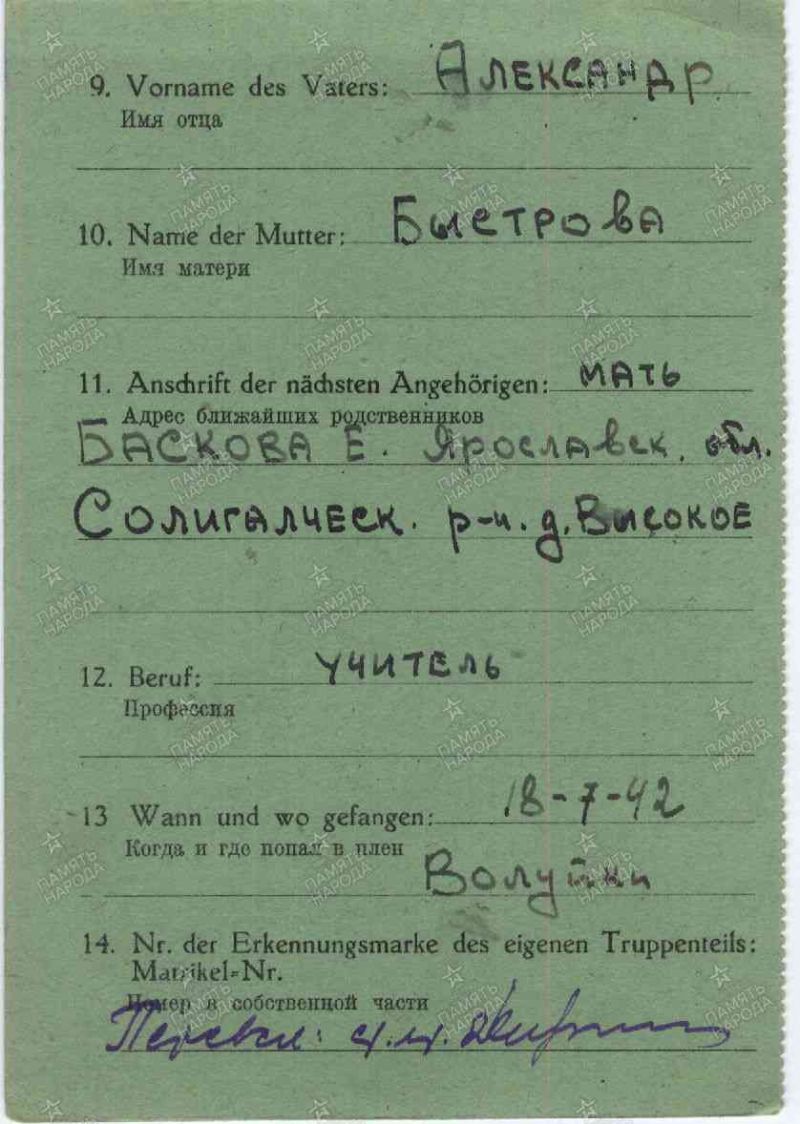 9. Vorname des Vaters: Александр
Имя отца
10. Name der Mutter: Быстрова
Имя матери
11. Anschrift der nächsten Angehörigen: мать
Адрес ближайших родственников
Баскова Е. Ярославск. обл.
Солигалческ. р-н. д. Высокое
12. Beruf: учитель
Профессия
13 Wann und wo gefangen: 18-7-42
Когда и где попал в плен
Волуйки
14. Nr. der Erkennungsmarke des eigenen Truppenteils:
Matrikel-Nr.
Номер в собственной части
Перевел:
ПАМЯТЬ НАРОДА